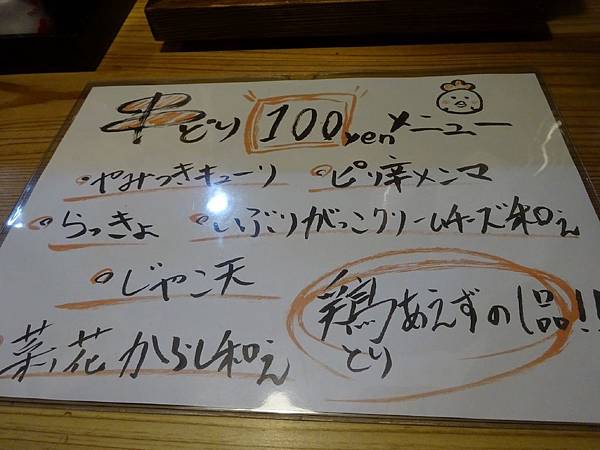 串どり 100yenメニュー
やみつきキューリ ピリ辛メンマ
らっきょ いぶりがっこクリームチーズ和え
じゃこ天
鶏あえずのし品!!
とり
菜ノ花からし和え